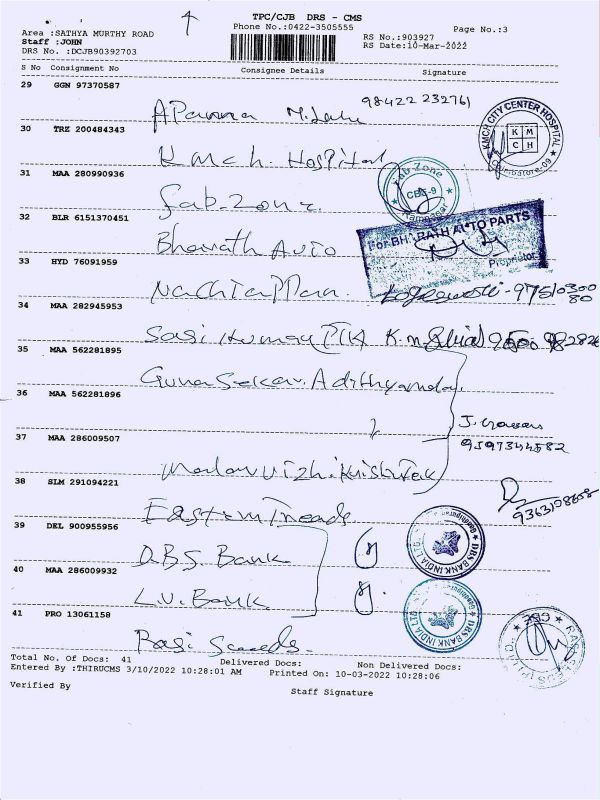 TPC/CJB DRS - CMS
Phone No.:0422-3505555
Page No.:3
Area :SATHYA MURTHY ROAD
Staff :JOHN
DRS No. :DCJB90392703
RS No.:903927
RS Date:10-Mar-2022
S No Consignment No Consignee Details Signature
29 GGN 97370587
98422 232761
30 TRZ 200484343
KMCH CITY CENTER HOSPITAL
K M C H
Coimbatore-09
Kmch. Hospital
31 MAA 280990936
Fab-Zone
CBE-9
Fab-Zone
32 BLR 6151370451
For BHARATH AUTO PARTS
Proprietor
Bharath Auto
33 HYD 76091959
34 MAA 282945953
Sasi Kumar
35 MAA 562281895
Guna Sekar. 
36 MAA 562281896
37 MAA 286009507
J.
9597344582
38 SLM 291094221
Eastern Treads
39 DEL 900955956
DBS BANK INDIA LTD
D.B.S. Bank
40 MAA 286009932
DBS BANK INDIA LTD
L.V. Bank
41 PRO 13061158
CBE
Rasi Seeeds.
Total No. Of Docs: 41 Delivered Docs: Non Delivered Docs:
Entered By :THIRUCMS 3/10/2022 10:28:01 AM Printed On: 10-03-2022 10:28:06
Verified By
Staff Signature